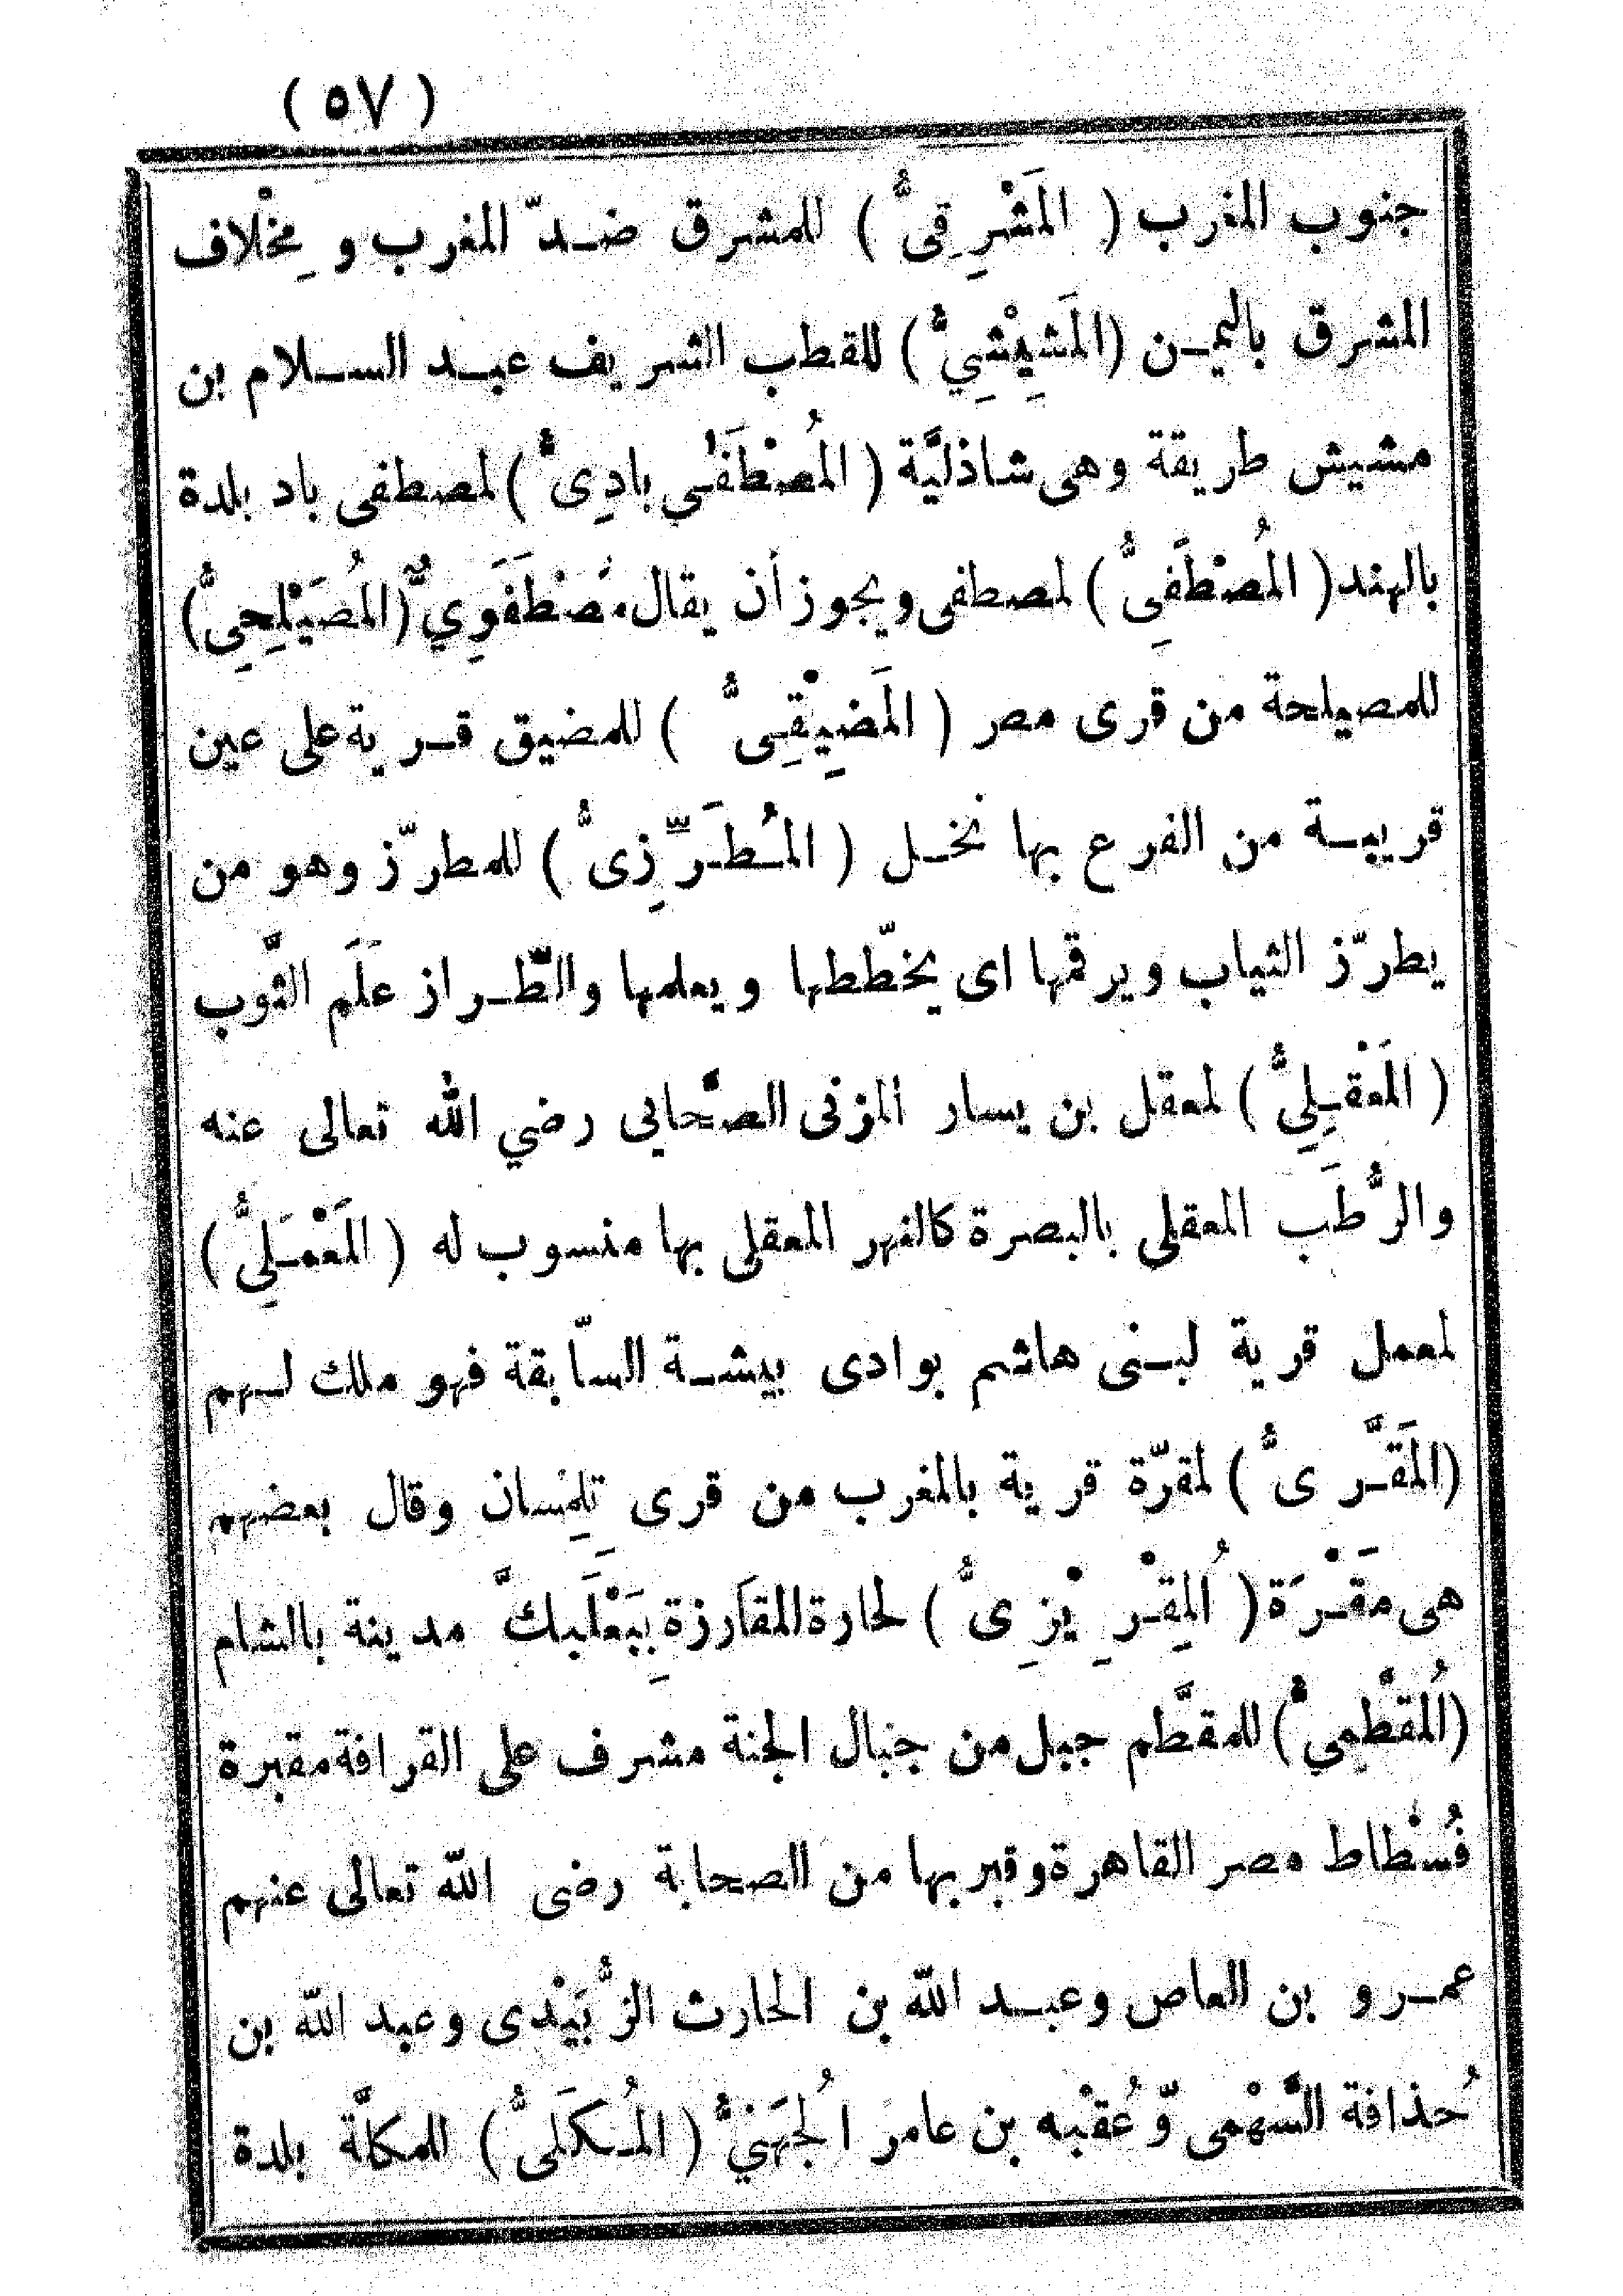 ( ٥٧ )
جنوب المغرب ( المَشْرِقِىُّ ) للمشرق ضدّ المغرب و مِخْلاف
المشرق باليمن (المَشِيْشِيُّ) للقطب الشريف عبد السلام بن
مشيش طريقة وهى شاذليَّة ( المُصْطَفَى بادِىُّ ) لمصطفى باد بلدة
بالهند ( المُصْطَفِىُّ ) لمصطفى ويجوز أن يقال مُصْطَفَوِيٌّ (المُصَيْلِحِىُّ)
للمصيلحة من قرى مصر ( المَضِيْقِىُّ ) للمضيق قرية على عين
قريبة من الفرع بها نخل ( المُطَرِّزِىُّ ) للمطرّز وهو من
يطرّز الثياب ويرقمها اى يخطّطها ويعلمها والطّراز عَلَم الثَّوب
( المَعْقِلِيُّ ) لمعقل بن يسار المزنى الصَّحابى رضي الله تعالى عنه
والرُّطَب المعقلى بالبصرة كالنهر المعقلى بها منسوب له ( المَعْمَلِيُّ )
لمعمل قرية لبنى هاشم بوادى بيشة السّابقة فهو ملك لهم
(المَقَّرىُّ ) لمقرّة قرية بالمغرب من قرى تِلِمْسان وقال بعضهم
هى مَقْرَة ( المُقِرِيْزِىُّ ) لحارة المقارزة بِبَعْلَبكَّ مدينة بالشام
(المُقْطَمِيُّ) للمقطَّم جبل من جبال الجنة مشرف على القرافة مقبرة
فُسْطاط مصر القاهرة وقبر بها من الصحابة رضى اللّه تعالى عنهم
عمرو بن العاص وعبد اللّه بن الحارث الزُّبَيْدى وعبد اللّه بن
حُذافة السَّهْمى وّعُقْبه بن عامر الُجهَنيُّ ( المُكَلىُّ ) للمكلَّة بلدة